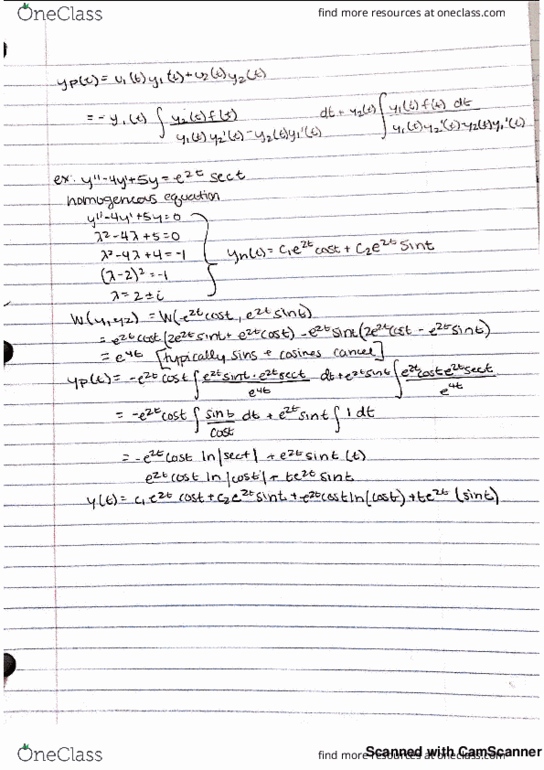 OneClass
find more resources at oneclass.com
yp(t) = u₁(t)y₁(t)+u₂(t)y₂(t)
= -y₁(t) ∫ y₂(t)f(t) / y₁(t)y₂'(t)-y₂(t)y₁'(t) dt + y₂(t) ∫ y₁(t)f(t) dt / y₁(t)y₂'(t)-y₂(t)y₁'(t)
ex: y''-4y'+5y=e^2t sect
homogenous equation
y''-4y'+5y=0
λ²-4λ+5=0
λ²-4λ+4=-1
yh(t)= c₁e^2t cost + c₂e^2t sint
(λ-2)²=-1
λ=2±i
W(y₁,y₂) = W(e^2t cost, e^2t sint)
= e^2t cost(2e^2t sint+e^2t cost) - e^2t sint(2e^2t cost - e^2t sint)
= e^4t [typically sins + cosines cancel]
yp(t) = -e^2t cost ∫ e^2t sint · e^2t sect / e^4t dt + e^2t sint ∫ e^2t cost e^2t sect / e^4t
= -e^2t cost ∫ sint / cost dt + e^2t sint ∫ 1 dt
= -e^2t cost ln|sect| + e^2t sint (t)
e^2t cost ln|cost| + te^2t sint
y(t) = c₁e^2t cost + c₂e^2t sint + e^2t cost ln(cost) + te^2t (sint)
OneClass
find more resources at oneclass.com
Scanned with CamScanner